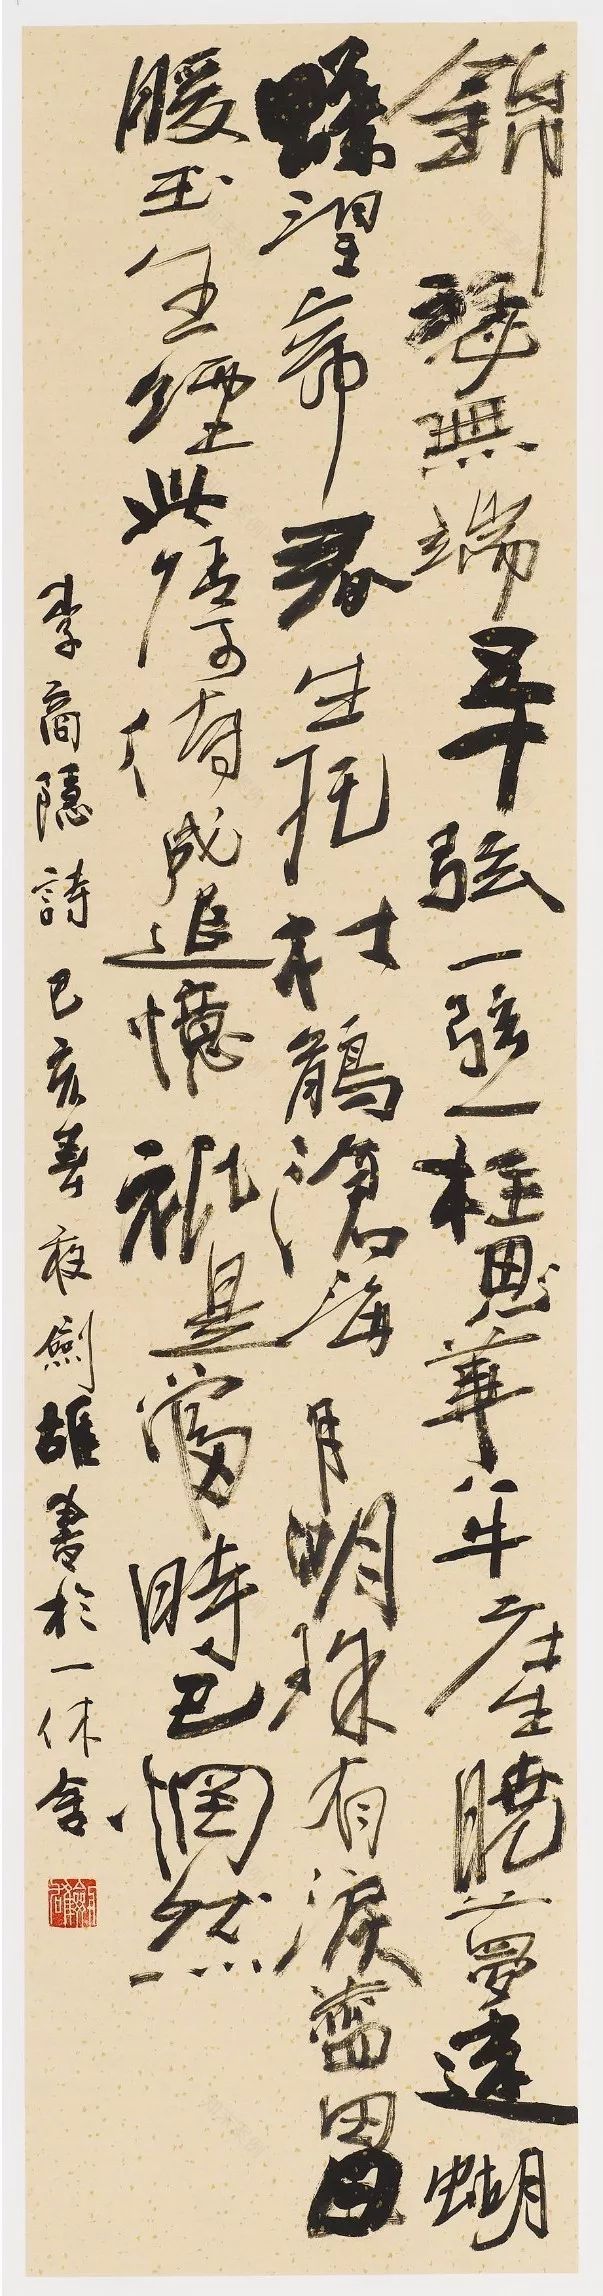 錦瑟無端五十弦一弦一柱思華年莊生曉夢迷蝴
蝶望帝春生托杜鵑滄海月明珠有淚藍田日
暖玉生煙此情可待成追憶衹是當時已惘然
李商隱詩己亥春夜劍雄書於一休舍